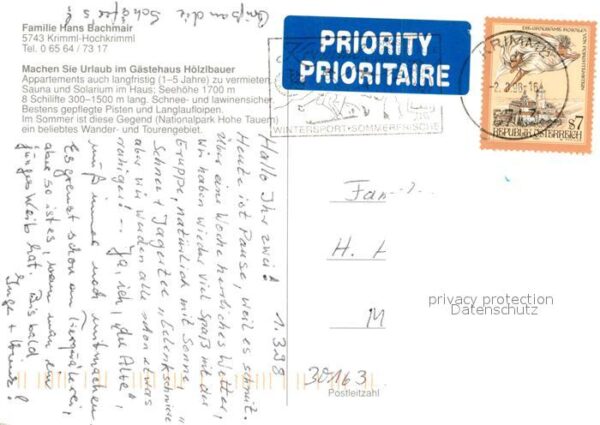 Grüße an die
Schäfers!
Familie Hans Bachmair
5743 Krimml-Hochkrimml
Tel. 0 65 64 / 73 17
Machen Sie Urlaub im Gästehaus Hölzlbauer
Appartements auch langfristig (1–5 Jahre) zu vermieten,
Sauna und Solarium im Haus; Seehöhe 1700 m
8 Schilifte 300–1500 m lang. Schnee- und lawinensicher.
Bestens gepflegte Pisten und Langlaufloipen.
Im Sommer ist diese Gegend (Nationalpark Hohe Tauern)
ein beliebtes Wander- und Tourengebiet.
PRIORITY
PRIORITAIRE
WINTERSPORT·SOMMERFRISCHE
KRIMML
REPUBLIK ÖSTERREICH
S7
1.3.98
Hallo Ihr zwei!
Heute ist Pause, weil es schneit.
Über eine Woche herrliches Wetter,
Wir haben wieder viel Spaß mit der
Gruppe, natürlich mit Sonne,
Schnee + Jagertee
aber wir werden alle schon etwas
ruhiger! Ja, ich, der Alte,
muß immer noch mitmachen,
Es grenzt schon an Tierquälerei,
aber so ist es, wenn man ein
junges Weib hat. Bis bald
Inge +
Fam
H.
M
privacy protection
Datenschutz
30163
Postleitzahl